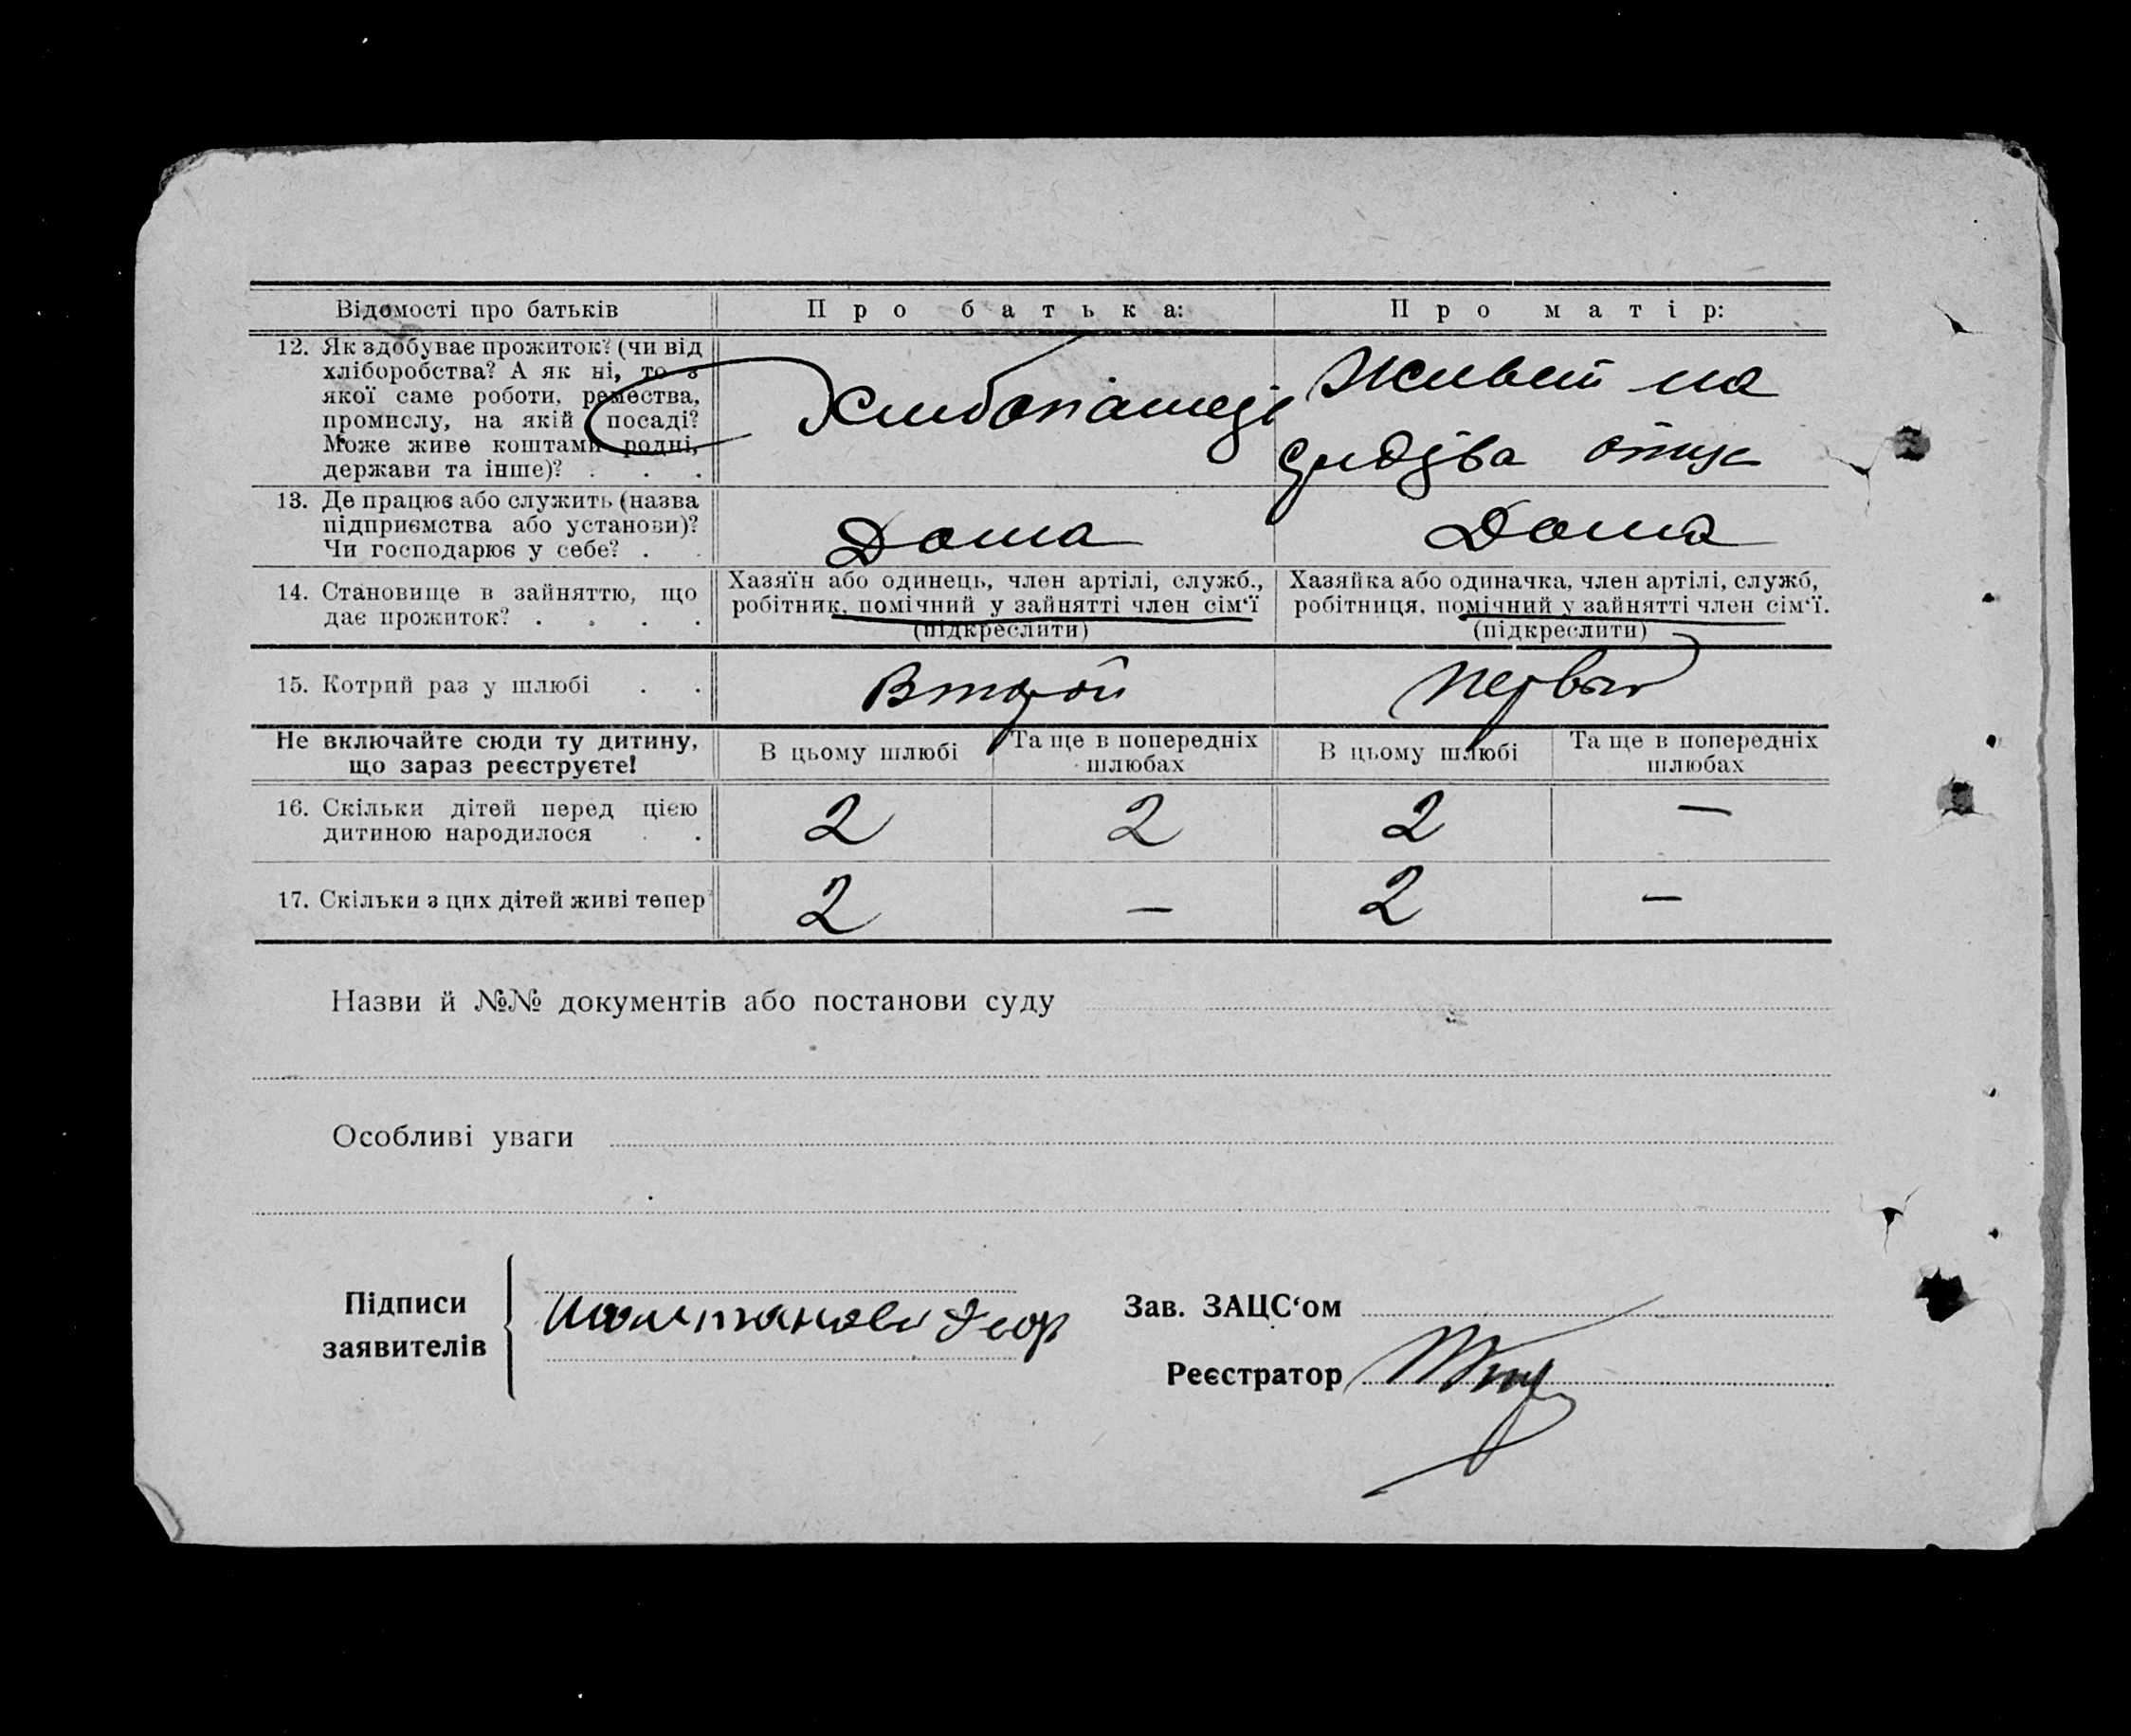 Відомості про батьків
Про батька:
Про матір:
12. Як здобуває прожиток? (чи від
хліборобства? А як ні, то з
якої саме роботи, ремества,
промислу, на якій посаді?
Може живе коштами родні,
держави та інше)? . . .
Живет на
отца
13. Де працює або служить (назва
підприємства або установи)?
Чи господарює у себе? . .
Дома
Дома
14. Становище в зайняттю, що
дає прожиток? . . . .
Хазяїн або одинець, член артілі, служб.,
робітник, помічний у зайнятті член сім‘ї
(підкреслити)
Хазяйка або одиначка, член артілі, служб,
робітниця, помічний у зайнятті член сім‘ї.
(підкреслити)
15. Котрий раз у шлюбі . .
Второй
первый
Не включайте сюди ту дитину,
що зараз реєструєте!
В цьому шлюбі
Та ще в попередніх
шлюбах
В цьому шлюбі
Та ще в попередніх
шлюбах
16. Скільки дітей перед цією
дитиною народилося . .
2
2
2
—
17. Скільки з цих дітей живі тепер
2
—
2
—
Назви й №№ документів або постанови суду
Особливі уваги
Підписи
заявителів
Зав. ЗАЦС‘ом
Реєстратор